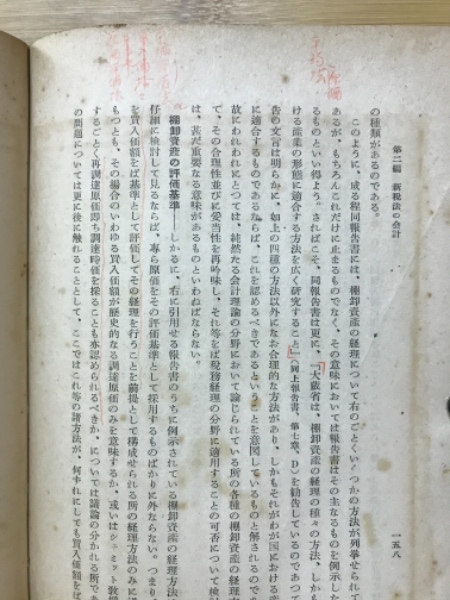 第二編　新税法の会計
一五八
の種類があるのである。
このように、成る程同報告書には、棚卸資産の経理について右のごとくい〻つかの方法が列挙せられて
あるが、もちろんこれだけに止まるものでなく、その意味においては報告書はその主なるものを例示した
るものといい得よう。さればこそ、同報告書は更に、「大蔵省は、棚卸資産の経理の種々の方法、しかも
ける産業の形態に適合する方法を広く研究すること」（同上報告書、第七章、D）を勧告しているのであつて
告の文言は明らかに、如上の四種の方法以外になお合理的な方法があり、しかもそれがわが国における産
に適合するものであるならば、これを認めるべきであるということを意図しているものと解されるのであ
故にわれわれにとつては、純然たる会計理論の分野において論じられている所の各種の棚卸資産の経理
て、その合理性並びに妥当性を再吟味し、それ等をば税務経理の分野に適用することの可否について検
は、甚だ重要なる意味があるものといわねばならない。
棚卸資産の評価基準——しかるに、右に引用せる報告書のうちに例示されている棚卸資産の経理方法
仔細に検討して見るならば、専ら原価をその評価基準として採用するものばかりに外ならない。つまり
を買入価額をば基準として評価してその経理を行うことを前提として構成せられる所の経理方法のみに
もつとも、その場合のいわゆる買入価額が歴史的なる調達原価のみを意味するか、或いはシュミット教授
するごとく再調達原価即ち調達時価を採ることも亦認められるべきか、については議論の分かれる所であ
の問題については更に後に触れることとして、ここではこれ等の諸方法が、何ずれにしても買入価額をば